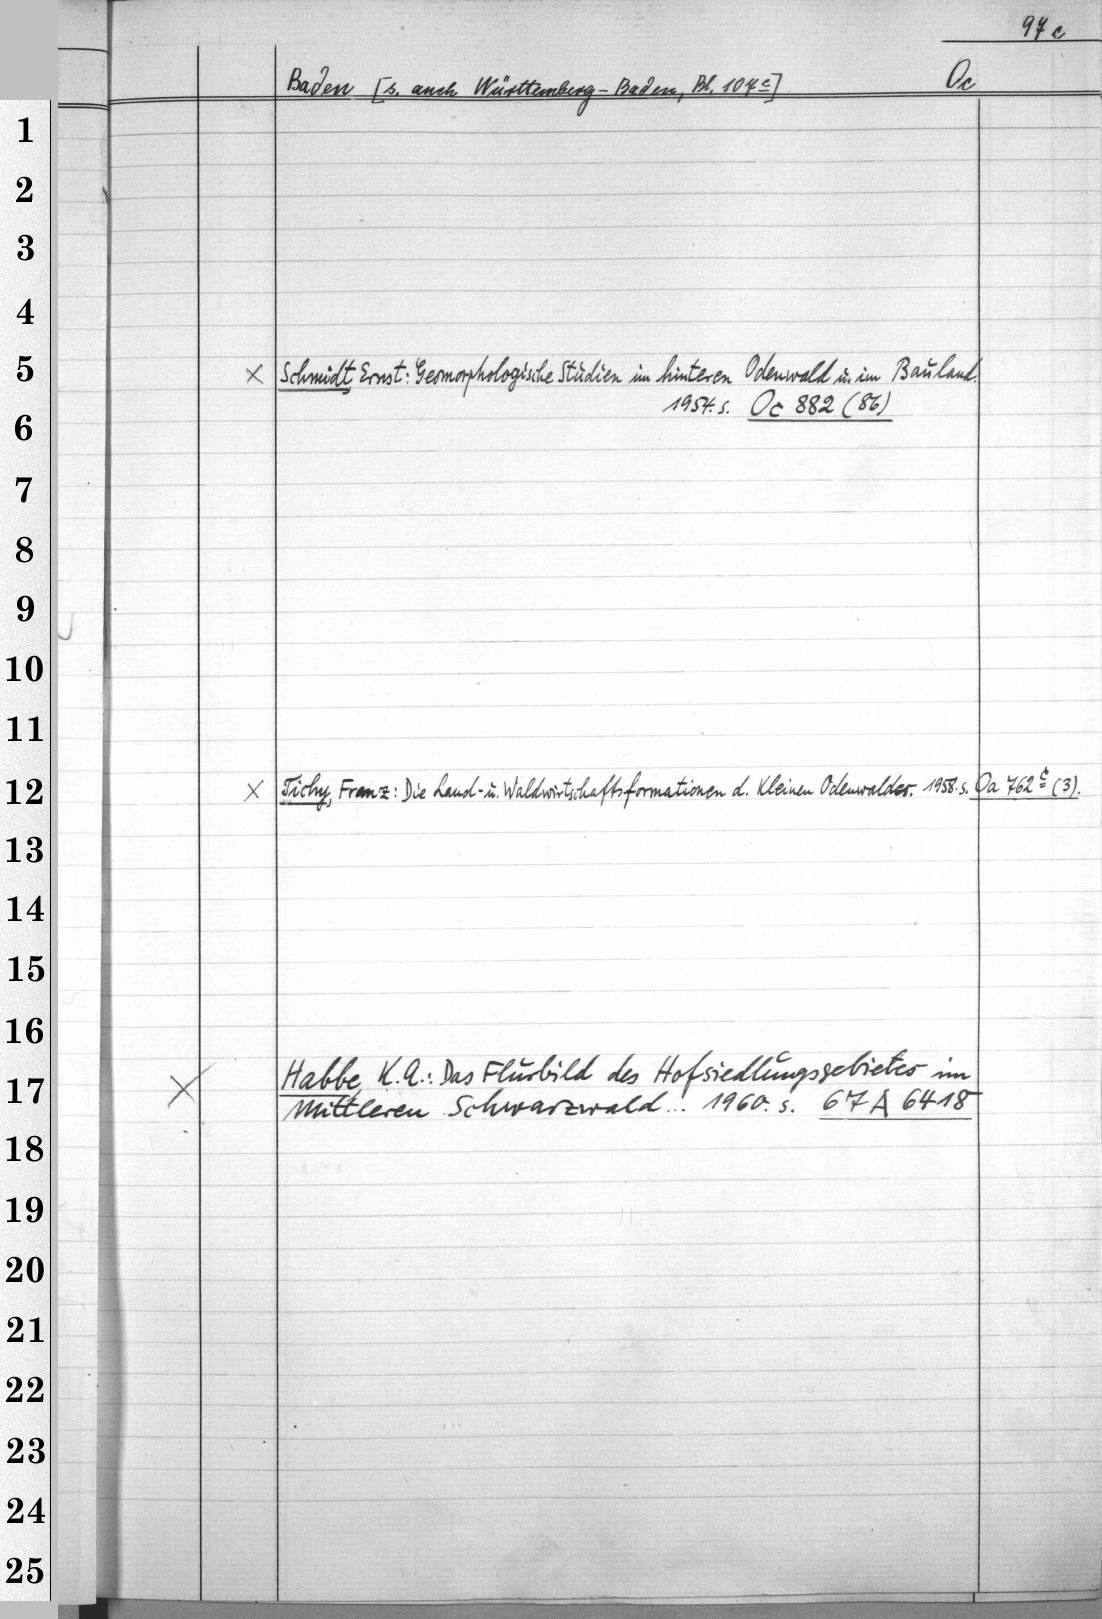 97c
Baden [s. auch Württemberg-Baden, Bl. 107c] Oc
1
2
3
4
5 × Schmidt, Ernst: Geomorphologische Studien im hinteren Odenwald u. im Bauland.
1954. s. Oc 882 (86)
6
7
8
9
10
11
12 × Tichy, Franz: Die Land- u. Waldwirtschaftsformationen d. Kleinen Odenwaldes. 1958. s. Oa 762c (3).
13
14
15
16
17 × Habbe, K.A.: Das Flurbild des Hofsiedlungsgebietes im
Mittleren Schwarzwald... 1960. s. 67 A 6418
18
19
20
21
22
23
24
25